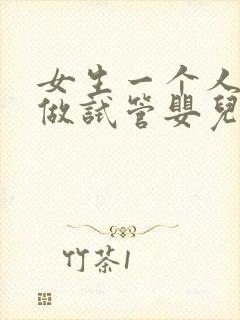 女生一个人
做試管嬰兒
竹茶1